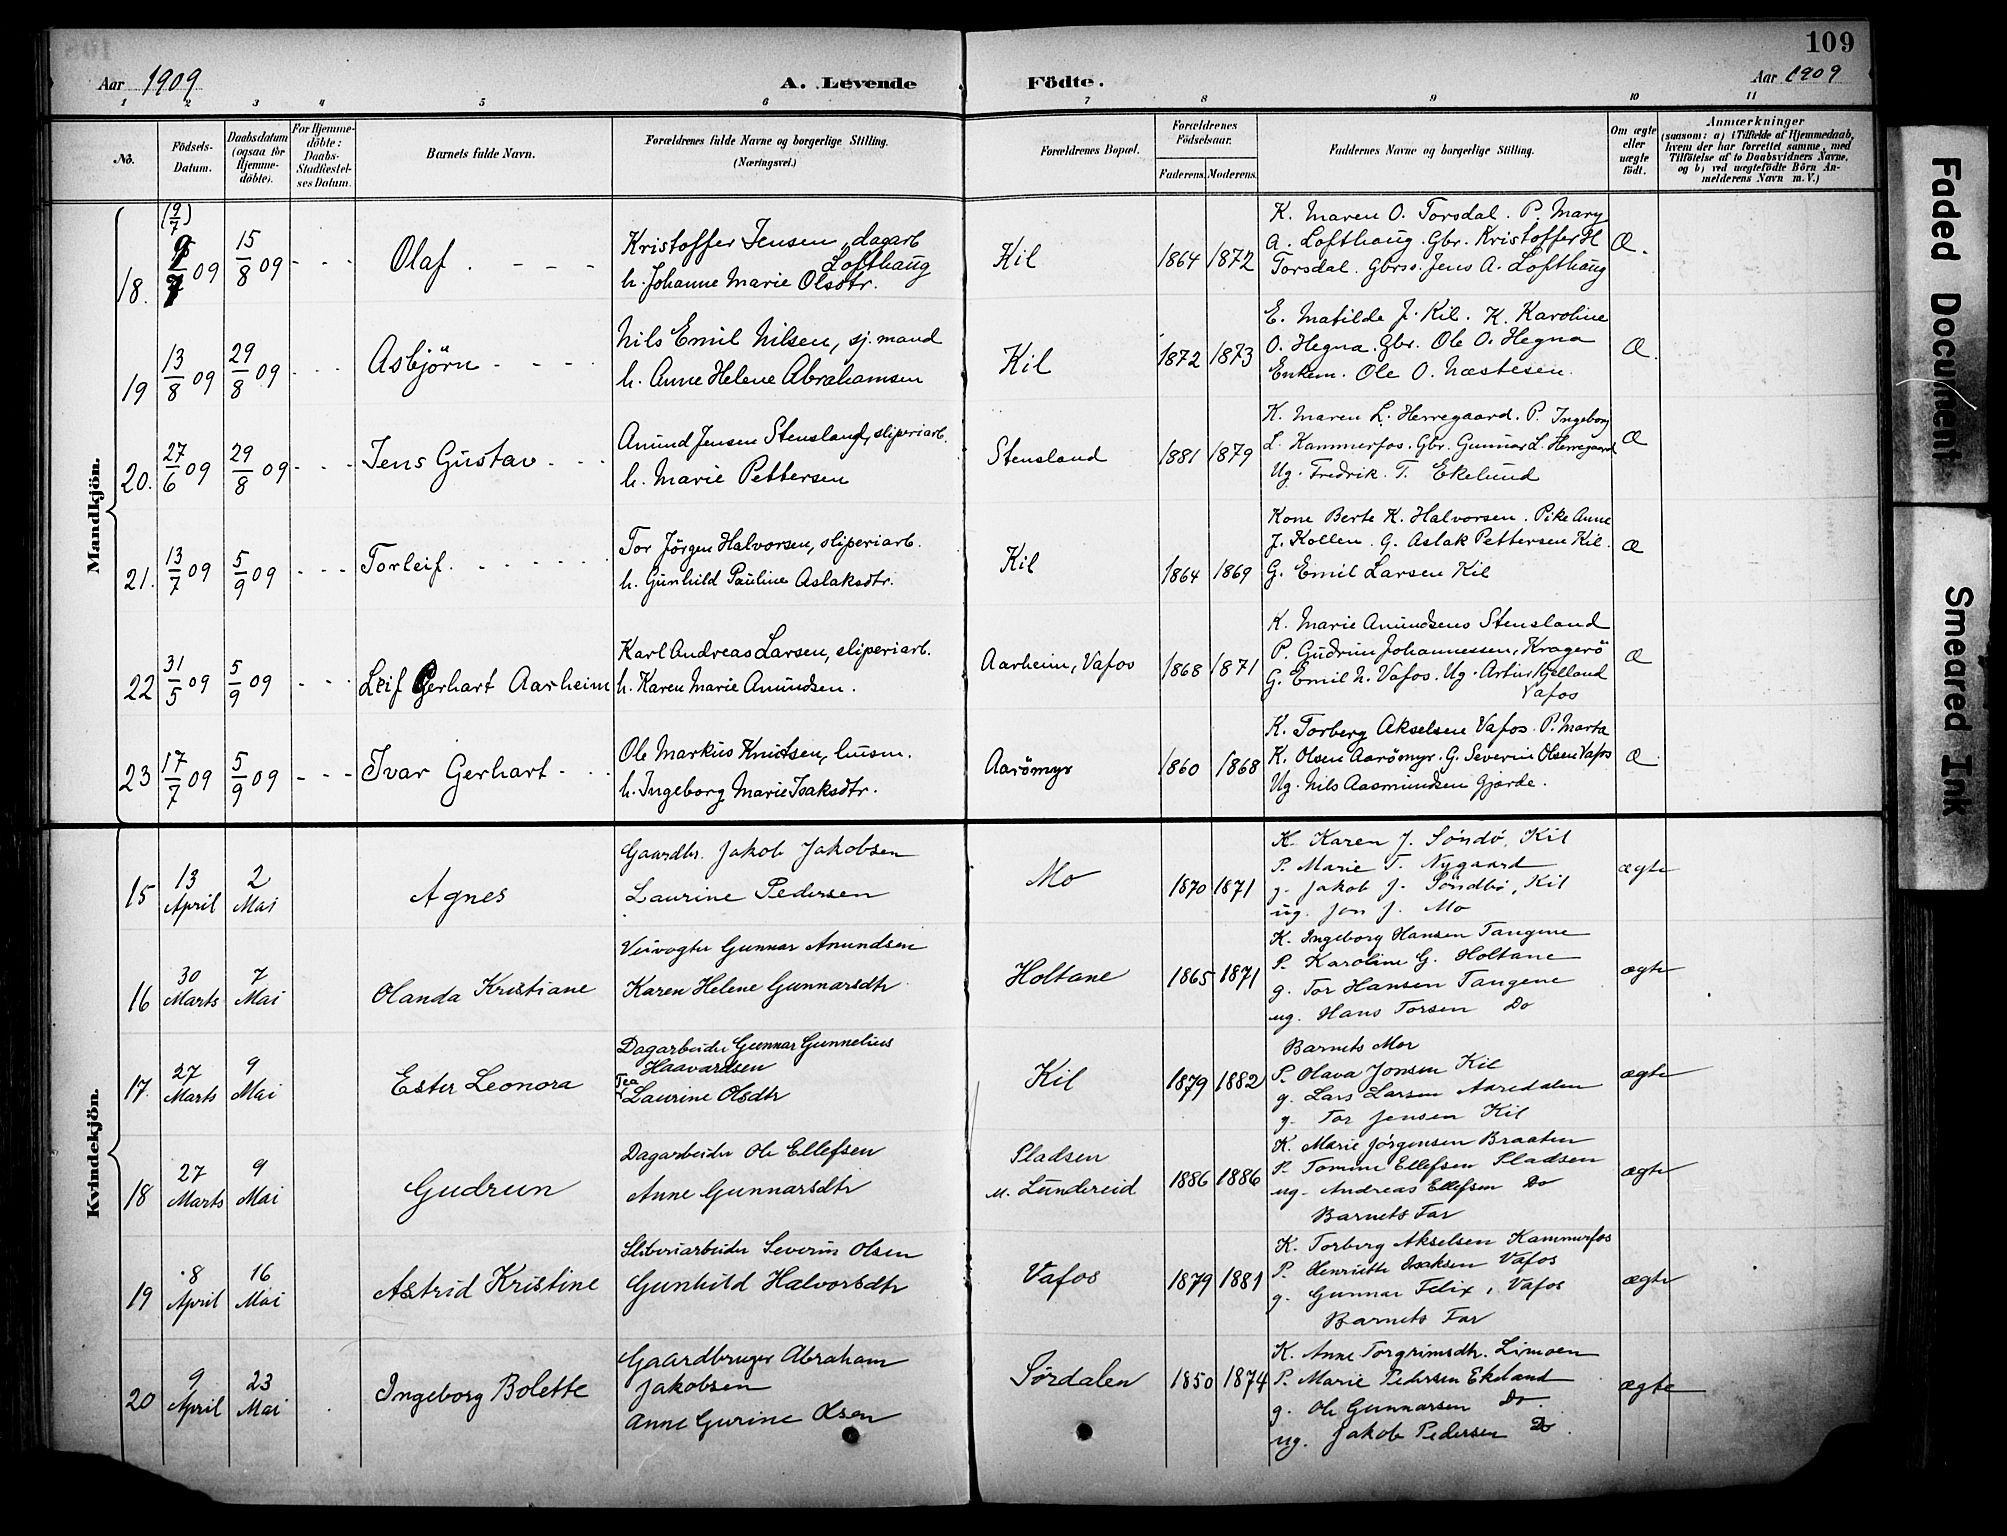 109
Aar 1909
A. Levende
Födte.
Aar 1909
1 2 3 4 5 6 7 8 9 10 11
No.
Födsels-Datum.
Daabsdatum (ogsaa for Hjemme-döbte).
For Hjemme-döbte: Daabs-Stadfæstel-ses Datum.
Barnets fulde Navn.
Forældrenes fulde Navne og borgerlige Stilling.
(Næringsvei.)
Forældrenes Bopæl.
Forældrenes Födselsaar.
Faderens.
Moderens.
Faddernes Navne og borgerlige Stilling.
Om ægte eller uægte födt.
Anmærkninger
(saasom: a) i Tilfælde af Hjemmedaab, hvem der har forrettet samme, med Tilföielse af to Daabsvidners Navne, og b) ved uægtefödte Börn An-melderens Navn m. V.)
Mandkjön.
18. (9/7) 9/7 09 15/8 09 - - - Olaf . - - -
Kristoffer Jensen, dagarb
Lofthaug
h. Johanne Marie Olsdtr.
Kil 1864 1872
K. Maren O. Torsdal. P. Mary
A. Lofthaug. Gbr. Kristoffer H
Torsdal. Gbrss. Jens A. Lofthaug
Æ.
19 13/8 09 29/8 09 - - - Asbjörn - - - -
Nils Emil Nilsen, sj. mand
h. Anne Helene Abrahamsen
Kil 1872 1873
E. Matilde J. Kil. K. Karoline
O. Hegna. Gbr. Ole O. Hegna
Enkem. Ole O. Næstesen.
Æ.
20. 27/6 09 29/8 09 - - - Jens Gustav - - -
Anund Jensen Stensland, sliperiarb.
h. Marie Pettersen
Stensland 1881 1879
K. Maren L. Herregaard. P. Ingeborg
L. Kammerfos. Gbr. Gunnar L. Herregaard
Ug. Fredrik. T. Ekelund
Æ
21. 13/7 09 5/9 09 - - - Torleif. - - - - - -
Tor Jörgen Halvorsen, sliperiarb.
h. Gunhild Pauline Aslaksdtr.
Kil 1864 1869
Kone Berte K. Halvorsen. Pike Anne
J. Kollen. G. Aslak Pettersen Kil.
G. Emil Larsen Kil
Æ
22 31/5 09 5/9 09 - - - Leif Gerhart Aarheim
Karl Andreas Larsen, sliperiarb.
h. Karen Marie Anundsen.
Aarheim, Vafos 1868 1871
K. Marie Anundsens Stensland
P. Gudrun Johannessen, Kragerö
G. Emil N. Vafos. Ug. Artur Kjelland
Vafos
Æ
23 17/7 09 5/9 09 - - - Ivar Gerhart - - -
Ole Markus Knutsen, husm.
h. Ingeborg Marie Isaksdtr.
Aarömyr 1860 1868
K. Torberg Akselsen Vafos. P. Marta
K. Olsen Aarömyr. G. Severin Olsen Vafos
Ug. Nils Aasmundsen Gjerde.
Æ
Kvindekjön.
15 13 April 2 Mai Agnes
Gaardbr. Jakob Jakobsen
Laurine Pedersen
Mo 1870 1871
K. Karen J. Søndbø, Kil
P. Marie T. Nygaard
g. Jakob J. Søndbø, Kil
ug. Jon J. Mo
ægte
16 30 Marts 7 Mai Olanda Kristiane
Veivogter Gunnar Anundsen
Karen Helene Gunnarsdtr
Holtane 1865 1871
K. Ingeborg Hansen Tangene
P. Karoline G. Holtane
g. Tor Hansen Tangene
ug. Hans Torsen Do
ægte
17. 27 Marts 9 Mai Ester Leonora
Dagarbeider Gunnar Gunnelius
Haavardsen
Tea
Laurine Olsdtr
Kil 1879 1882
Barnets Mor
P. Olava Jonsen Kil
g. Lars Larsen Aaredalen
g. Tor Jensen Kil
ægte
18 27 Marts 9 Mai Gudrun
Dagarbeider Ole Ellefsen
Anne Gunnarsdtr
Pladsen
M. Lundereid 1886 1886
K. Marie Jørgensen Braaten
P. Tomine Ellefsen Pladsen
ug. Andreas Ellefsen Do
Barnets Far
ægte
19 8 April 16 Mai Astrid Kristine
Sliberiarbeider Severin Olsen
Gunhild Halvorsdtr
Vafos 1879 1881
K. Torberg Akselsen Kammerfos
P. Henriette Isaksen Vafos
g. Gunnar Felix, Vafos
Barnets Far
ægte
20 9 April 23 Mai Ingeborg Bolette
Gaardbruger Abraham
Jakobsen
Anne Gurine Olsen
Sørdalen 1850 1874
K. Anne Torgrimsdtr. Limoen
P. Marie Pedersen Ekelund
g. Ole Gunnarsen Do.
ug. Jakob Pedersen Do.
ægte
Faded Document
Smeared Ink